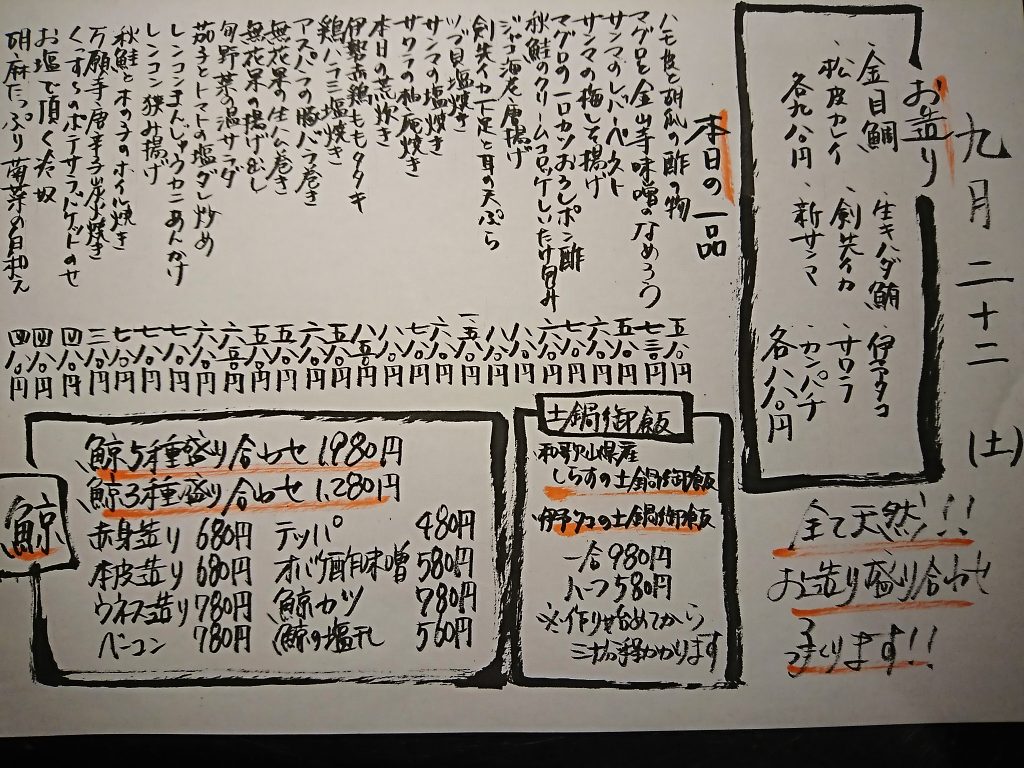 九月二十二(土)
お造り
金目鯛 生キハダ鮪 伊予タコ
松皮カレイ 剣先イカ サワラ
各九八〇円 新サンマ カンパチ
各八八〇円
全て天然!!
お造り盛り合わせ
つくります!!
本日の一品
ハモ皮と胡瓜の酢の物 五八〇円
マグロと金山寺味噌のなめろう 七三〇円
サンマのレバーペースト 五八〇円
サンマの梅しそ揚げ 六八〇円
マグロの一口カツおろしポン酢 七八〇円
秋鮭のクリームコロッケしいたけ包み 六八〇円
ジャコ海老唐揚げ 八八〇円
剣先イカ下足と耳の天ぷら 八八〇円
ツブ貝塩焼き
サンマの塩焼き
サワラの柚庵焼き
本日の荒炊き
伊勢赤鶏ももタタキ
鶏ハラミ塩焼き
アスパラの豚バラ巻き
無花果の生ハム巻き
無花果の揚げ出し
旬野菜の温サラダ
茄子とトマトの塩ダレ炒め
レンコンまんじゅうカニあんかけ
レンコン挟み揚げ 七八〇円
秋鮭と木の子のホイル焼き 七八〇円
万願寺唐辛子炭火焼き 三八〇円
くんすらのポテサラバゲットのせ 四八〇円
お塩で頂く冷奴 四八〇円
胡麻たっぷり菊菜の白和え 四八〇円
土鍋御飯
和歌山県産
しらすの土鍋御飯
伊予タコの土鍋御飯
一合 980円
ハーフ 580円
※作り始めてから
三十分程かかります
鯨
鯨5種盛り合わせ 1,980円
鯨3種盛り合わせ 1,280円
赤身造り 680円 テッパ 480円
本皮造り 680円 オバケ酢味噌 580円
ウネス造り 780円 鯨カツ 780円
ベーコン 780円 鯨の塩干し 560円